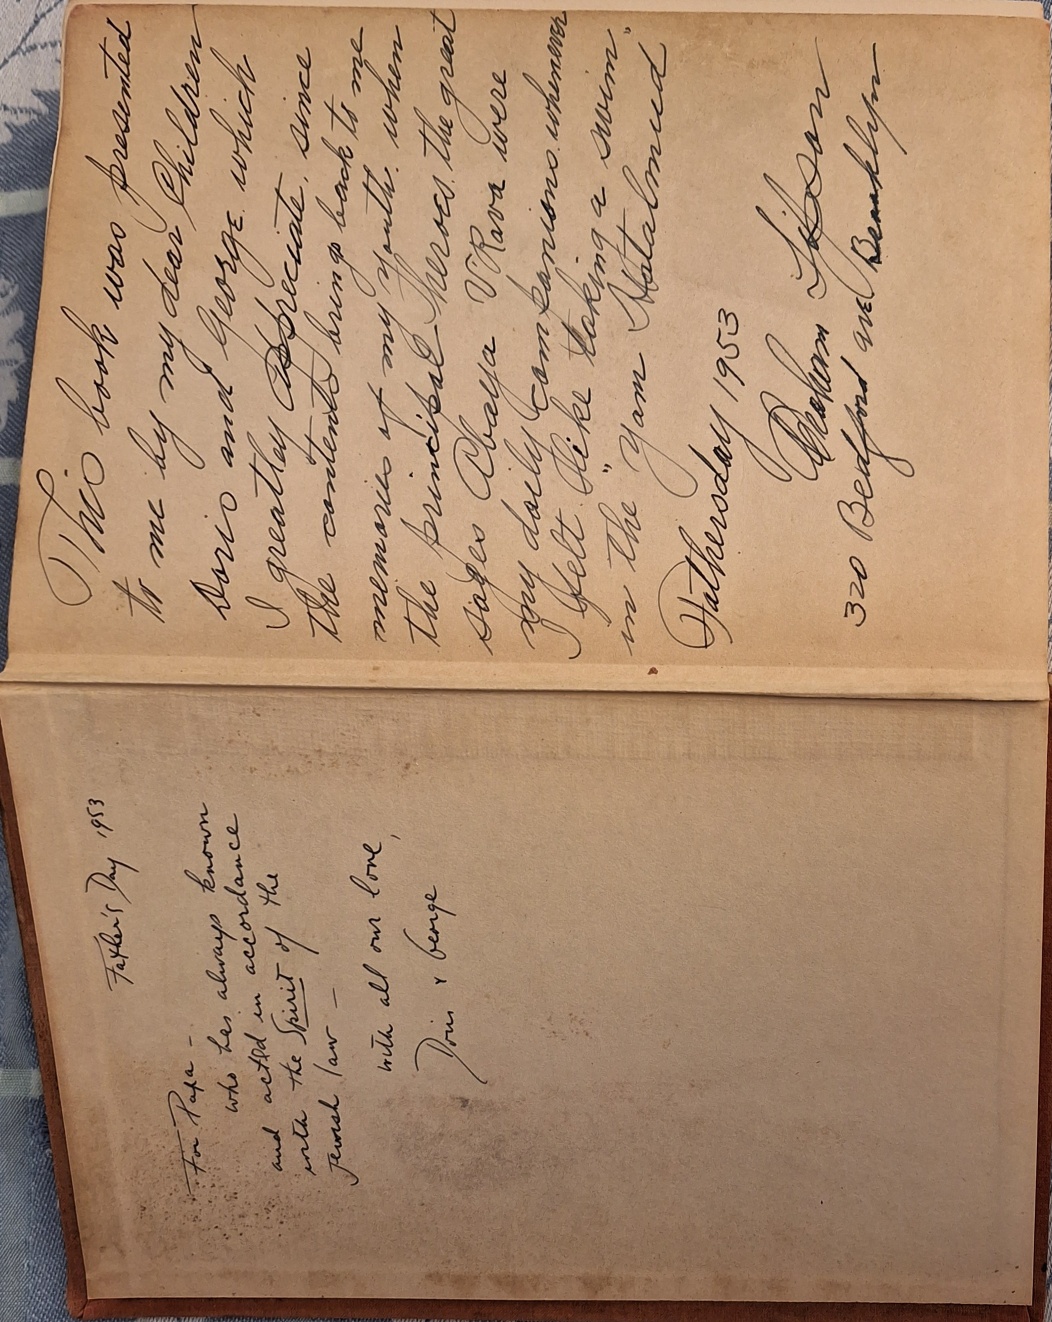 Father's Day 1953
For Papa -
who has always known
and acted in accordance
with the Spirit of the
Jewish law -
with all our love,
Doris & George
This book was presented
to me by my dear Children
Doris and George. which
I greatley appreciate, since
the contents brings back to me
memories of my youth. when
the principal Theroes. the great
sages Abaya VRava were
my daily companions. whenever
I felt like taking a swim
in the "Yam Hatalmud"
Fathersday 1953
Abraham Lifson
320 Bedford ave Brooklyn